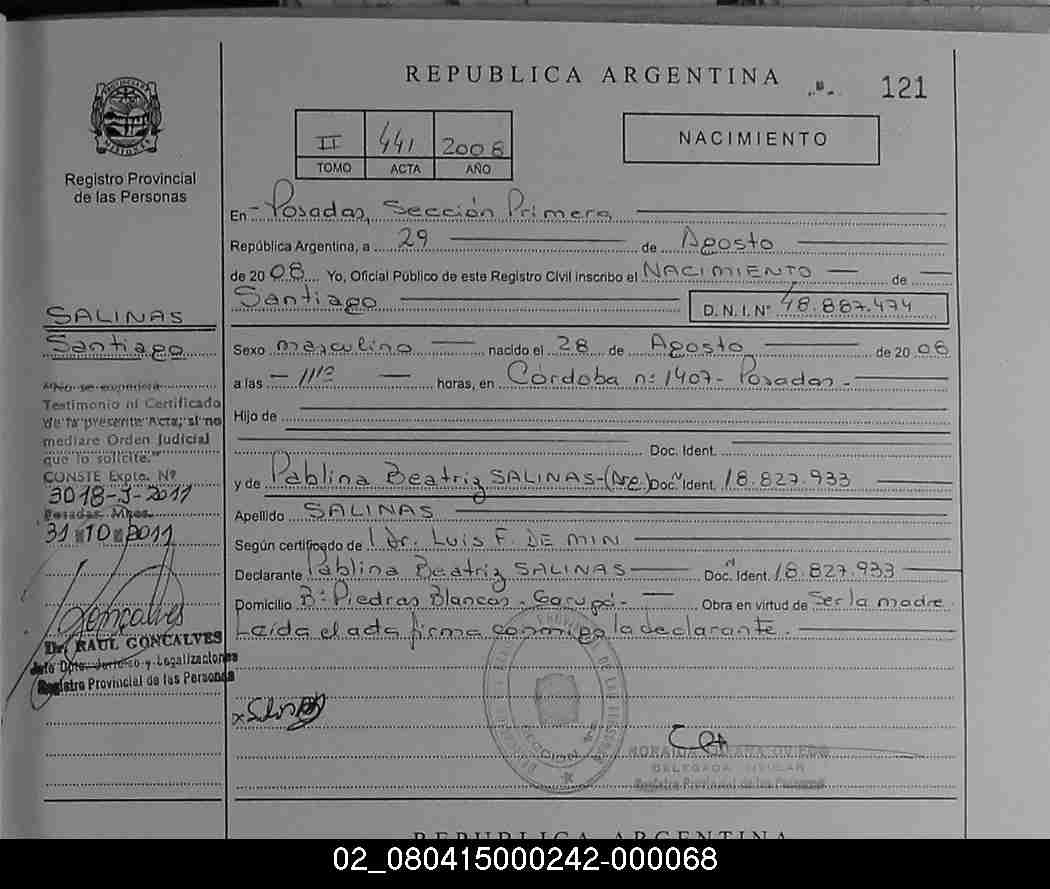 REPUBLICA ARGENTINA
121
II 441 2008
TOMO ACTA AÑO
NACIMIENTO
Registro Provincial
de las Personas
En - Posadas, Sección Primera
República Argentina, a 29 de Agosto
de 2008 Yo, Oficial Público de este Registro Civil inscribo el NACIMIENTO de
Santiago D.N.I.Nº 48.887.474
SALINAS
Santiago
Sexo masculino nacido el 28 de Agosto de 2008
a las - 11 - horas, en Córdoba nº 1407- Posadas -
Hijo de
Doc. Ident.
y de Pablina Beatriz SALINAS- Doc. Ident. 18.827.933
Apellido SALINAS
Según certificado de Dr. Luis F. DE MIN
Declarante Pablina Beatriz SALINAS Doc. Ident. 18.827.933
Domicilio Bº Piedras Blancas - Garupá - Obra en virtud de Ser la madre
Leída el acta firma conmigo la declarante.
"No se expedirá
Testimonio ni Certificado
de la presente Acta, si no
mediare Orden Judicial
que lo solicite."
CONSTE Expte. Nº
3018-J-2011
Posadas, Mnes.
31 10 2011
Dr. RAUL GONCALVES
Jefe Dpto. Jurídico y Legalizaciones
Registro Provincial de las Personas
DELEGADA TITULAR
Registro Provincial de las Personas
REPUBLICA ARGENTINA
02_080415000242-000068